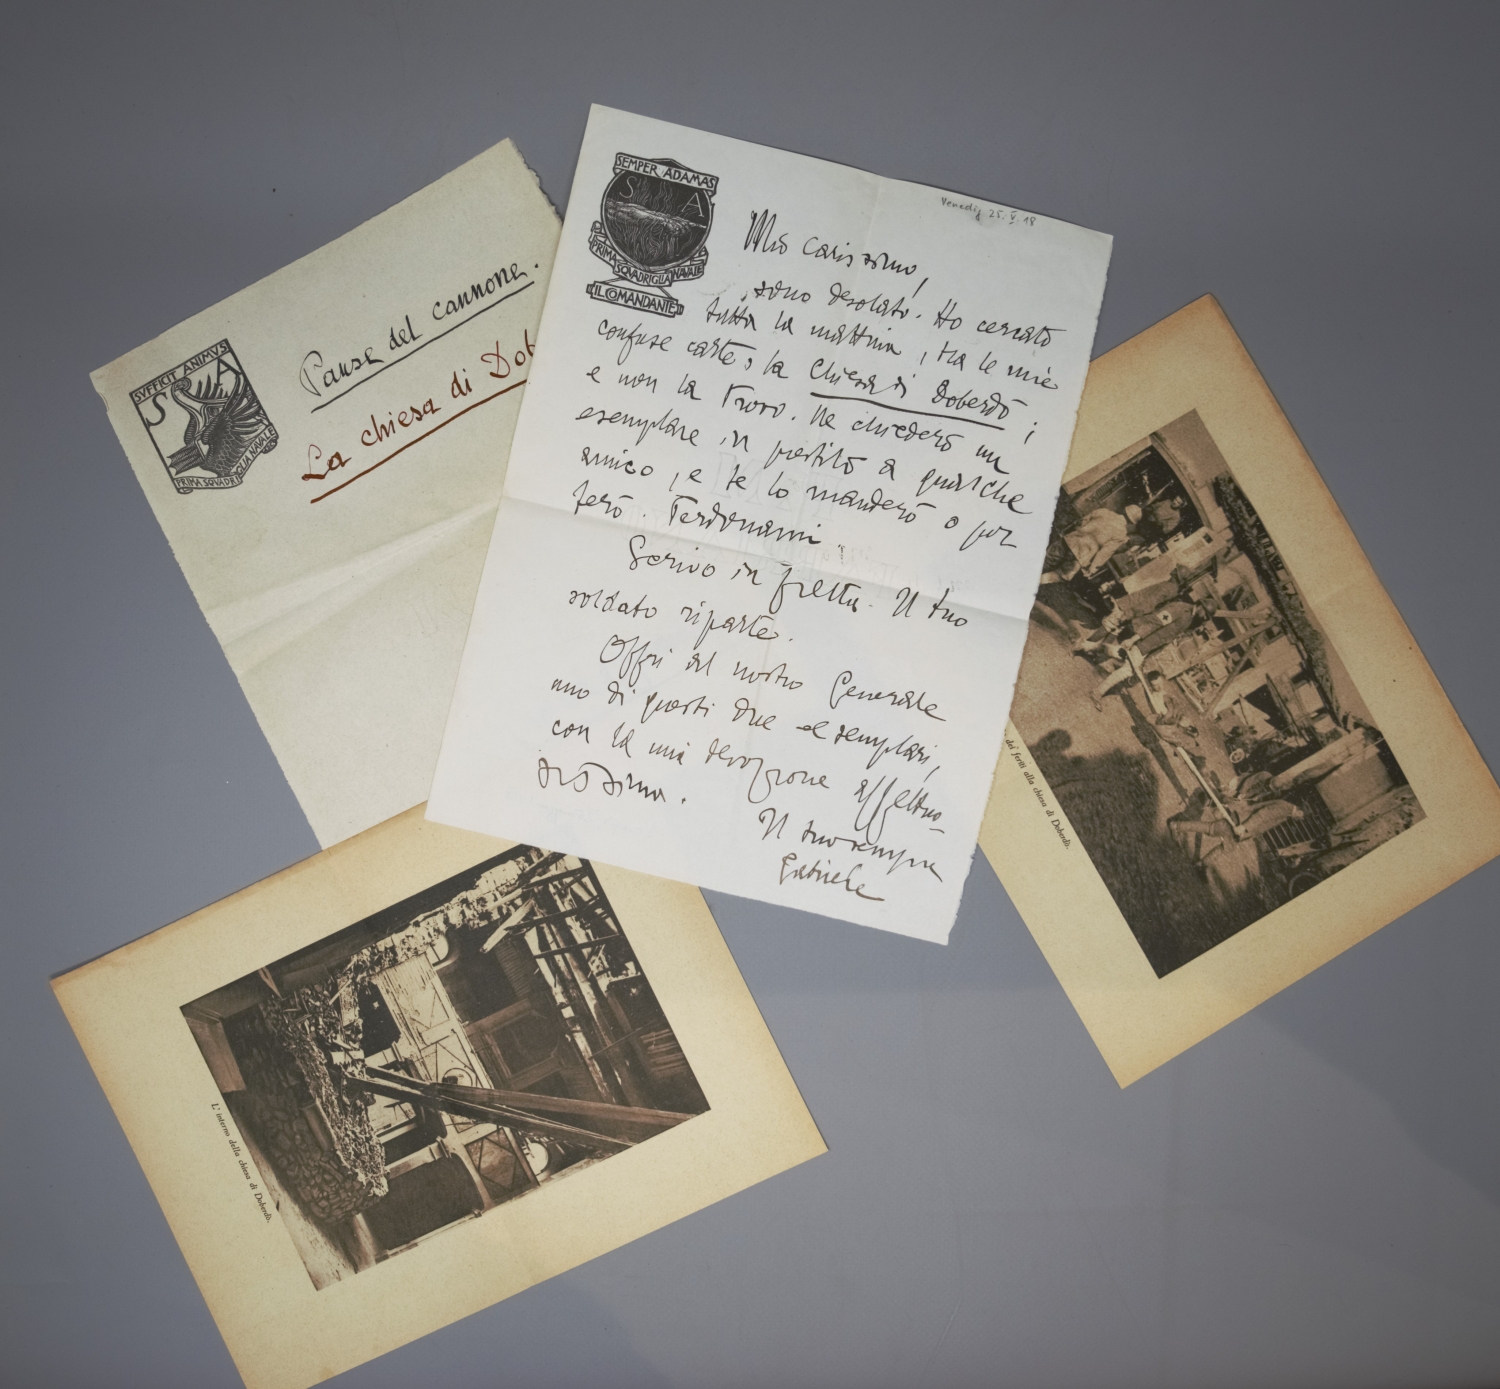 SVFFICIT ANIMVS
S A
PRIMA SQVADRIGLIA NAVALE
Pause del cannone.
La chiesa di Dob
SEMPER ADAMAS
S A
PRIMA SQVADRIGLIA NAVALE
IL COMANDANTE
Venedig 25. V. 18
Mio carissimo,
sono desolato. Ho cercato
tutta la mattina, tra le mie
confuse carte, la Chiesa di Doberdò;
e non la trovo. Ne chiederò un
esemplare in prestito a qualche
amico, e te lo manderò o por
terò.
Scrivo in fretta. Il tuo
soldato riparte.
Offri al nostro Generale
uno di questi due esemplari,
con la mia devozione affettuo-
sissima.
Il tuo sempre
Gabriele
dei feriti alla chiesa di Doberdò.
L'interno della chiesa di Doberdò.